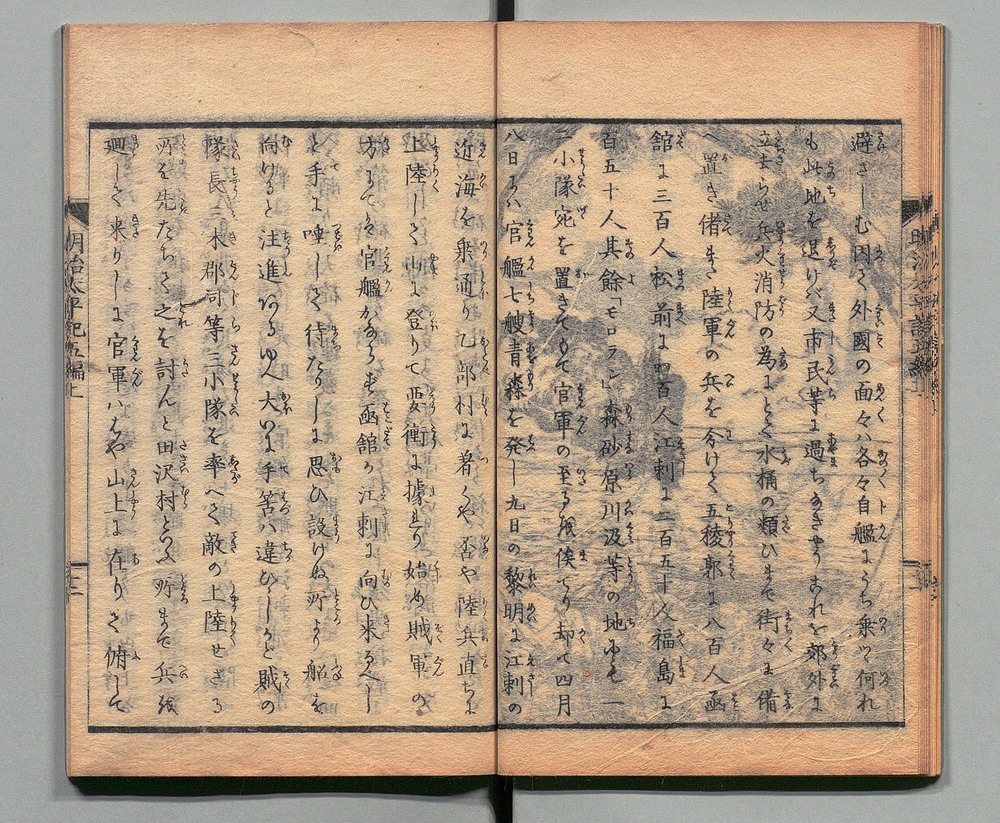 避さしむ因て外國の面々ハ各々自艦にうち乗ツ何れ
も此地を退けバ又市民等は過ちあるまじきやう之れを郊外に
立去らせ兵火消防の為にとて水桶の類ひまで街々に備
へ置き偖また陸軍の兵を分けて五稜郭に八百人函
館に三百人松前に四百人江刺に二百五十人福島に
百五十人其餘「モロラン」森砂原川汲等の地にも一
二小隊宛を置きてもて官軍の至るを俟てり却て四月
八日にハ官艦七艘青森を発し九日の黎明に江刺の
近海を乗通り乙部村に着くや否や陸兵直ちに
上陸して山に登りて要衝に據れり始め賊軍の
方にてハ官艦かならず函館か江刺に向ひ来るべし
と手に唾して待たりしに思ひ設けぬ所より船を
向けると注進ゆゑ大いに手筈ハ違ひしかど賊の
隊長三木郡司等三小隊を率へて敵の上陸せざる
所を先だちて之を討んと田沢村といふ所まで兵を
廻して来りしに官軍ハはや山上に在りて俯して
明治太平記五編上